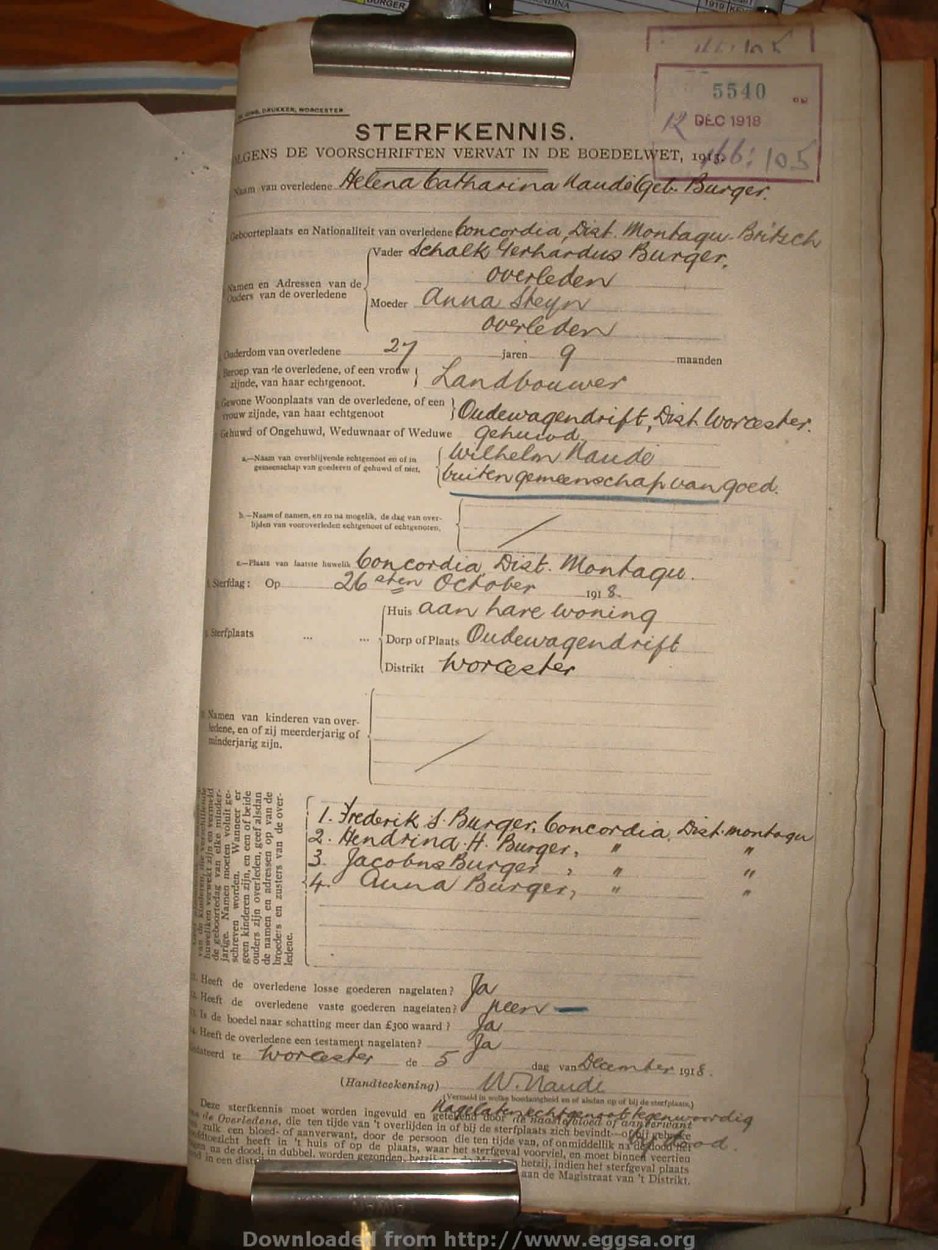 BURGER
1919
DRUKKER, WORCESTER
5540
12 DEC 1918
166: 105
STERFKENNIS.
VOLGENS DE VOORSCHRIFTEN VERVAT IN DE BOEDELWET, 1913.
Naam van overledene Helena Catharina Naudé (Geb. Burger.
Geboorteplaats en Nationaliteit van overledene Concordia, Dist. Montagu - Britsch
Namen en Adressen van de Ouders van de overledene
Vader Schalk Gerhardus Burger,
overleden
Moeder Anna Steyn
overleden
Ouderdom van overledene 27 jaren 9 maanden
Beroep van de overledene, of een vrouw
zijnde, van haar echtgenoot. Landbouwer
Gewone Woonplaats van de overledene, of een
vrouw zijnde, van haar echtgenoot Oudewagendrift, Dist. Worcester.
Gehuwd of Ongehuwd, Weduwnaar of Weduwe gehuwd
a.—Naam van overblijvende echtgenoot en of in Wilhelm Naudé
gemeenschap van goederen of gehuwd of niet, buiten gemeenschap van goed.
b.—Naam of namen, en zo na mogelik, de dag van over-
lijden van vooroverleden echtgenoot of echtgenoten,
c.—Plaats van laatste huwelik Concordia, Dist. Montagu.
Sterfdag: Op 26sten October 1918.
Sterfplaats ... ...
Huis aan hare woning
Dorp of Plaats Oudewagendrift
Distrikt Worcester
Namen van kinderen van over-
ledene, en of zij meerderjarig of
minderjarig zijn.
van de kinderen, die verschillende
huweliken verwekt zijn en vermeld
de geboortedag van elke minder-
jarige. Namen moeten voluit ge-
schreven worden. Wanneer er
geen kinderen zijn, en een of beide
ouders zijn overleden, geef alsdan
de namen en adressen op van de
broeders en zusters van de over-
ledene.
1. Frederik S. Burger, Concordia, Dist. Montagu
2. Hendrina H. Burger, " "
3. Jacobus Burger, " "
4. Anna Burger, " "
11. Heeft de overledene losse goederen nagelaten? Ja
12. Heeft de overledene vaste goederen nagelaten? Neen —
13. Is de boedel naar schatting meer dan £300 waard? Ja
14. Heeft de overledene een testament nagelaten? Ja
Gedateerd te Worcester de 5 dag van December 1918.
(Handteekening) W. Naudé
(Vermeld in welke hoedanigheid en of alsdan op of bij de sterfplaats.)
Nagelaten echtgenoot tegenwoordig
bij dood.
Deze sterfkennis moet worden ingevuld en getekend door de naaste bloed of aanverwant
van de Overledene, die ten tijde van 't overlijden in of bij de sterfplaats zich bevindt—of bij gebreke
van zulk een bloed- of aanverwant, door de persoon die ten tijde van, of onmiddellik na de dood het
hoofdtoezicht heeft in 't huis of op de plaats, waar het sterfgeval voorviel, en moet binnen veertien
dagen na de dood, in dubbel, worden gezonden, hetzij, indien het sterfgeval plaats
aan de Magistraat van 't Distrikt.
Downloaded from http://www.eggsa.org